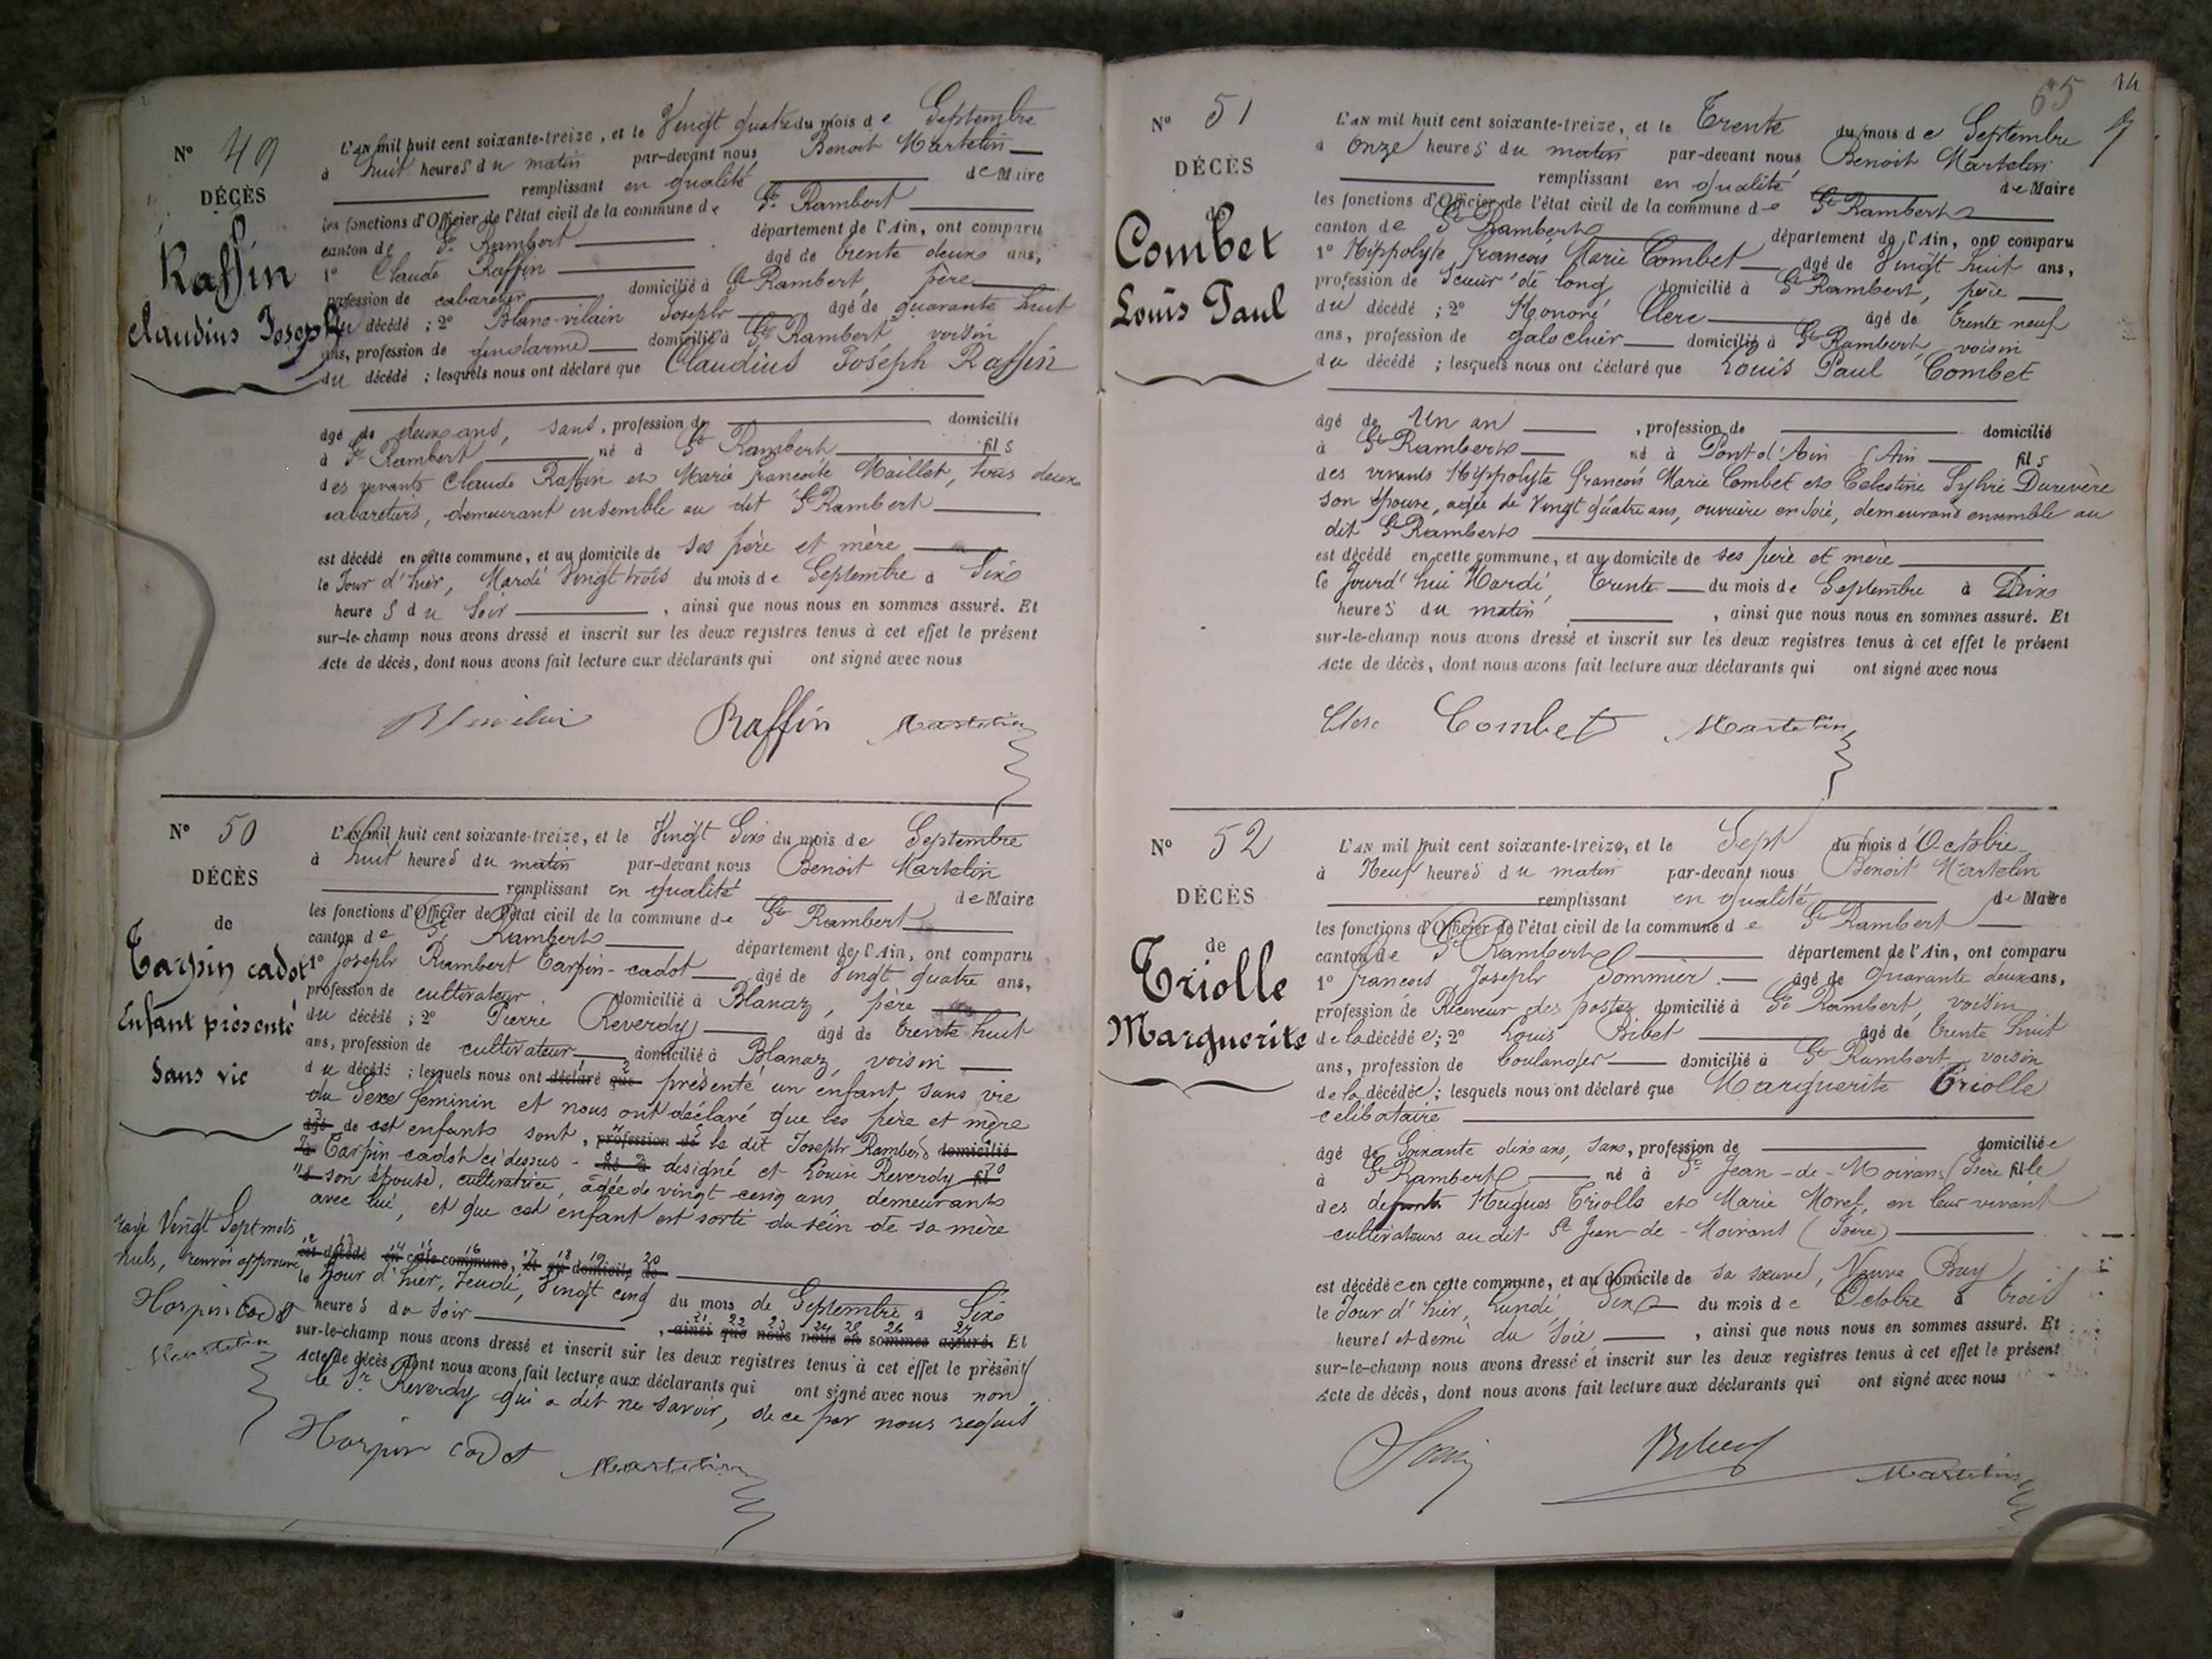 N° 49
DÉCÈS
de
Raffin
Claudius Joseph
L'AN mil huit cent soixante-treize, et le Vingt quatre du mois de Septembre
à huit heures du matin par-devant nous Benoit Martelin
remplissant en qualité de Maire
les fonctions d'Officier de l'état civil de la commune de St Rambert
canton de St Rambert département de l'Ain, ont comparu
1° Claude Raffin âgé de trente deux ans,
profession de cabaretier domicilié à St Rambert, père
du décédé ; 2° Blanc-vilain Joseph âgé de quarante huit
ans, profession de gendarme domicilié à St Rambert voisin
du décédé ; lesquels nous ont déclaré que Claudius Joseph Raffin
âgé de deux ans, sans, profession de domicilié
à St Rambert né à St Rambert fils
des vivants Claude Raffin et Marie françoise Maillet, tous deux
cabaretiers, demeurant ensemble au dit St Rambert
est décédé en cette commune, et au domicile de ses père et mère
le Jour d'hier, Mardi Vingt trois du mois de Septembre à Six
heures du Soir, ainsi que nous nous en sommes assuré. Et
sur-le-champ nous avons dressé et inscrit sur les deux registres tenus à cet effet le présent
Acte de décès, dont nous avons fait lecture aux déclarants qui ont signé avec nous
Raffin Martelin
N° 50
DÉCÈS
de
Tarpin cadot
Enfant présenté
Sans vie
L'AN mil huit cent soixante-treize, et le Vingt Six du mois de Septembre
à huit heures du matin par-devant nous Benoit Martelin
remplissant en qualité de Maire
les fonctions d'Officier de l'état civil de la commune de St Rambert
canton de St Rambert département de l'Ain, ont comparu
1° Joseph Rambert Tarpin-cadot âgé de Vingt quatre ans,
profession de cultivateur domicilié à Blanaz, père
du décédé ; 2° Pierre Reverdy âgé de trente huit
ans, profession de cultivateur domicilié à Blanaz, voisin
du décédé ; lesquels nous ont déclaré que présenté un enfant sans vie
du Sexe féminin et nous ont déclaré que les père et mère
âgé de cet enfant sont, profession de le dit Joseph Rambert domicilié
à Tarpin cadot ci dessus - né à désigné et Louise Reverdy fil
son épouse, cultivatrice, âgée de vingt cinq ans demeurants
avec lui, et que cet enfant est sorti du sein de sa mère
est décédé en cette commune, et au domicile de
le Jour d'hier, Jeudi, Vingt cinq du mois de Septembre à Six
heures du Soir, ainsi que nous nous en sommes assuré. Et
sur-le-champ nous avons dressé et inscrit sur les deux registres tenus à cet effet le présent
Acte de décès, dont nous avons fait lecture aux déclarants qui ont signé avec nous non
le Sr Reverdy qui a dit ne savoir, de ce par nous requis
Rayé Vingt Sept mots
nuls, renvoi approuvé
Harpin cadot
Martelin
Harpin cadot Martelin
65 14
N° 51
DÉCÈS
de
Combet
Louis Paul
L'AN mil huit cent soixante-treize, et le Trente du mois de Septembre
à Onze heures du matin par-devant nous Benoit Martelin
remplissant en qualité de Maire
les fonctions d'Officier de l'état civil de la commune de St Rambert
canton de St Rambert département de l'Ain, ont comparu
1° Hippolyte françois Marie Combet âgé de Vingt huit ans,
profession de Scieur de long domicilié à St Rambert, père
du décédé ; 2° Honoré Clerc âgé de trente neuf
ans, profession de galochier domicilié à St Rambert, voisin
du décédé ; lesquels nous ont déclaré que Louis Paul Combet
âgé de Un an, profession de domicilié
à St Rambert né à Pont d'Ain (Ain fils
des vivants Hippolyte françois Marie Combet et Celestine Sylvie Durevère
son épouse, agée de Vingt quatre ans, ouvrière en soie, demeurans ensemble au
dit St Rambert
est décédé en cette commune, et au domicile de ses père et mère
le Jourd'hui Mardi, Trente du mois de Septembre à Dix
heures du matin, ainsi que nous nous en sommes assuré. Et
sur-le-champ nous avons dressé et inscrit sur les deux registres tenus à cet effet le présent
Acte de décès, dont nous avons fait lecture aux déclarants qui ont signé avec nous
Clerc Combet Martelin
N° 52
DÉCÈS
de
Triolle
Marguerite
L'AN mil huit cent soixante-treize, et le Sept du mois d'Octobre
à Neuf heures du matin par-devant nous Benoit Martelin
remplissant en qualité de Maire
les fonctions d'Officier de l'état civil de la commune de St Rambert
canton de St Rambert département de l'Ain, ont comparu
1° françois Joseph Sommier âgé de Quarante deux ans,
profession de Receveur des postes domicilié à St Rambert, voisin
de la décédée ; 2° Louis Bibet âgé de trente huit
ans, profession de boulanger domicilié à St Rambert, voisin
de la décédée ; lesquels nous ont déclaré que Marguerite Triolle
celibataire
âgé de Soixante dix ans, Sans, profession de domiciliée
à St Rambert né à St Jean-de-Moirans (Isère fille
des defunts Hugues Triolle et Marie Morel, en leur vivant
cultivateurs au dit St Jean-de-Moirans (Isère)
est décédée en cette commune, et au domicile de sa sœur, Veuve Buy
le Jour d'hier, Lundi Six du mois de Octobre à trois
heures et demi du Soir, ainsi que nous nous en sommes assuré. Et
sur-le-champ nous avons dressé et inscrit sur les deux registres tenus à cet effet le présent
Acte de décès, dont nous avons fait lecture aux déclarants qui ont signé avec nous
Martelin